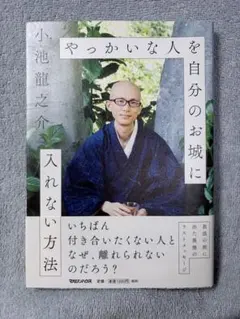 やっかいな人を自分のお城に
入れない方法
小池龍之介
いちばん
付き合いたくない人と
なぜ、離れられない
のだろう？
マガジンハウス